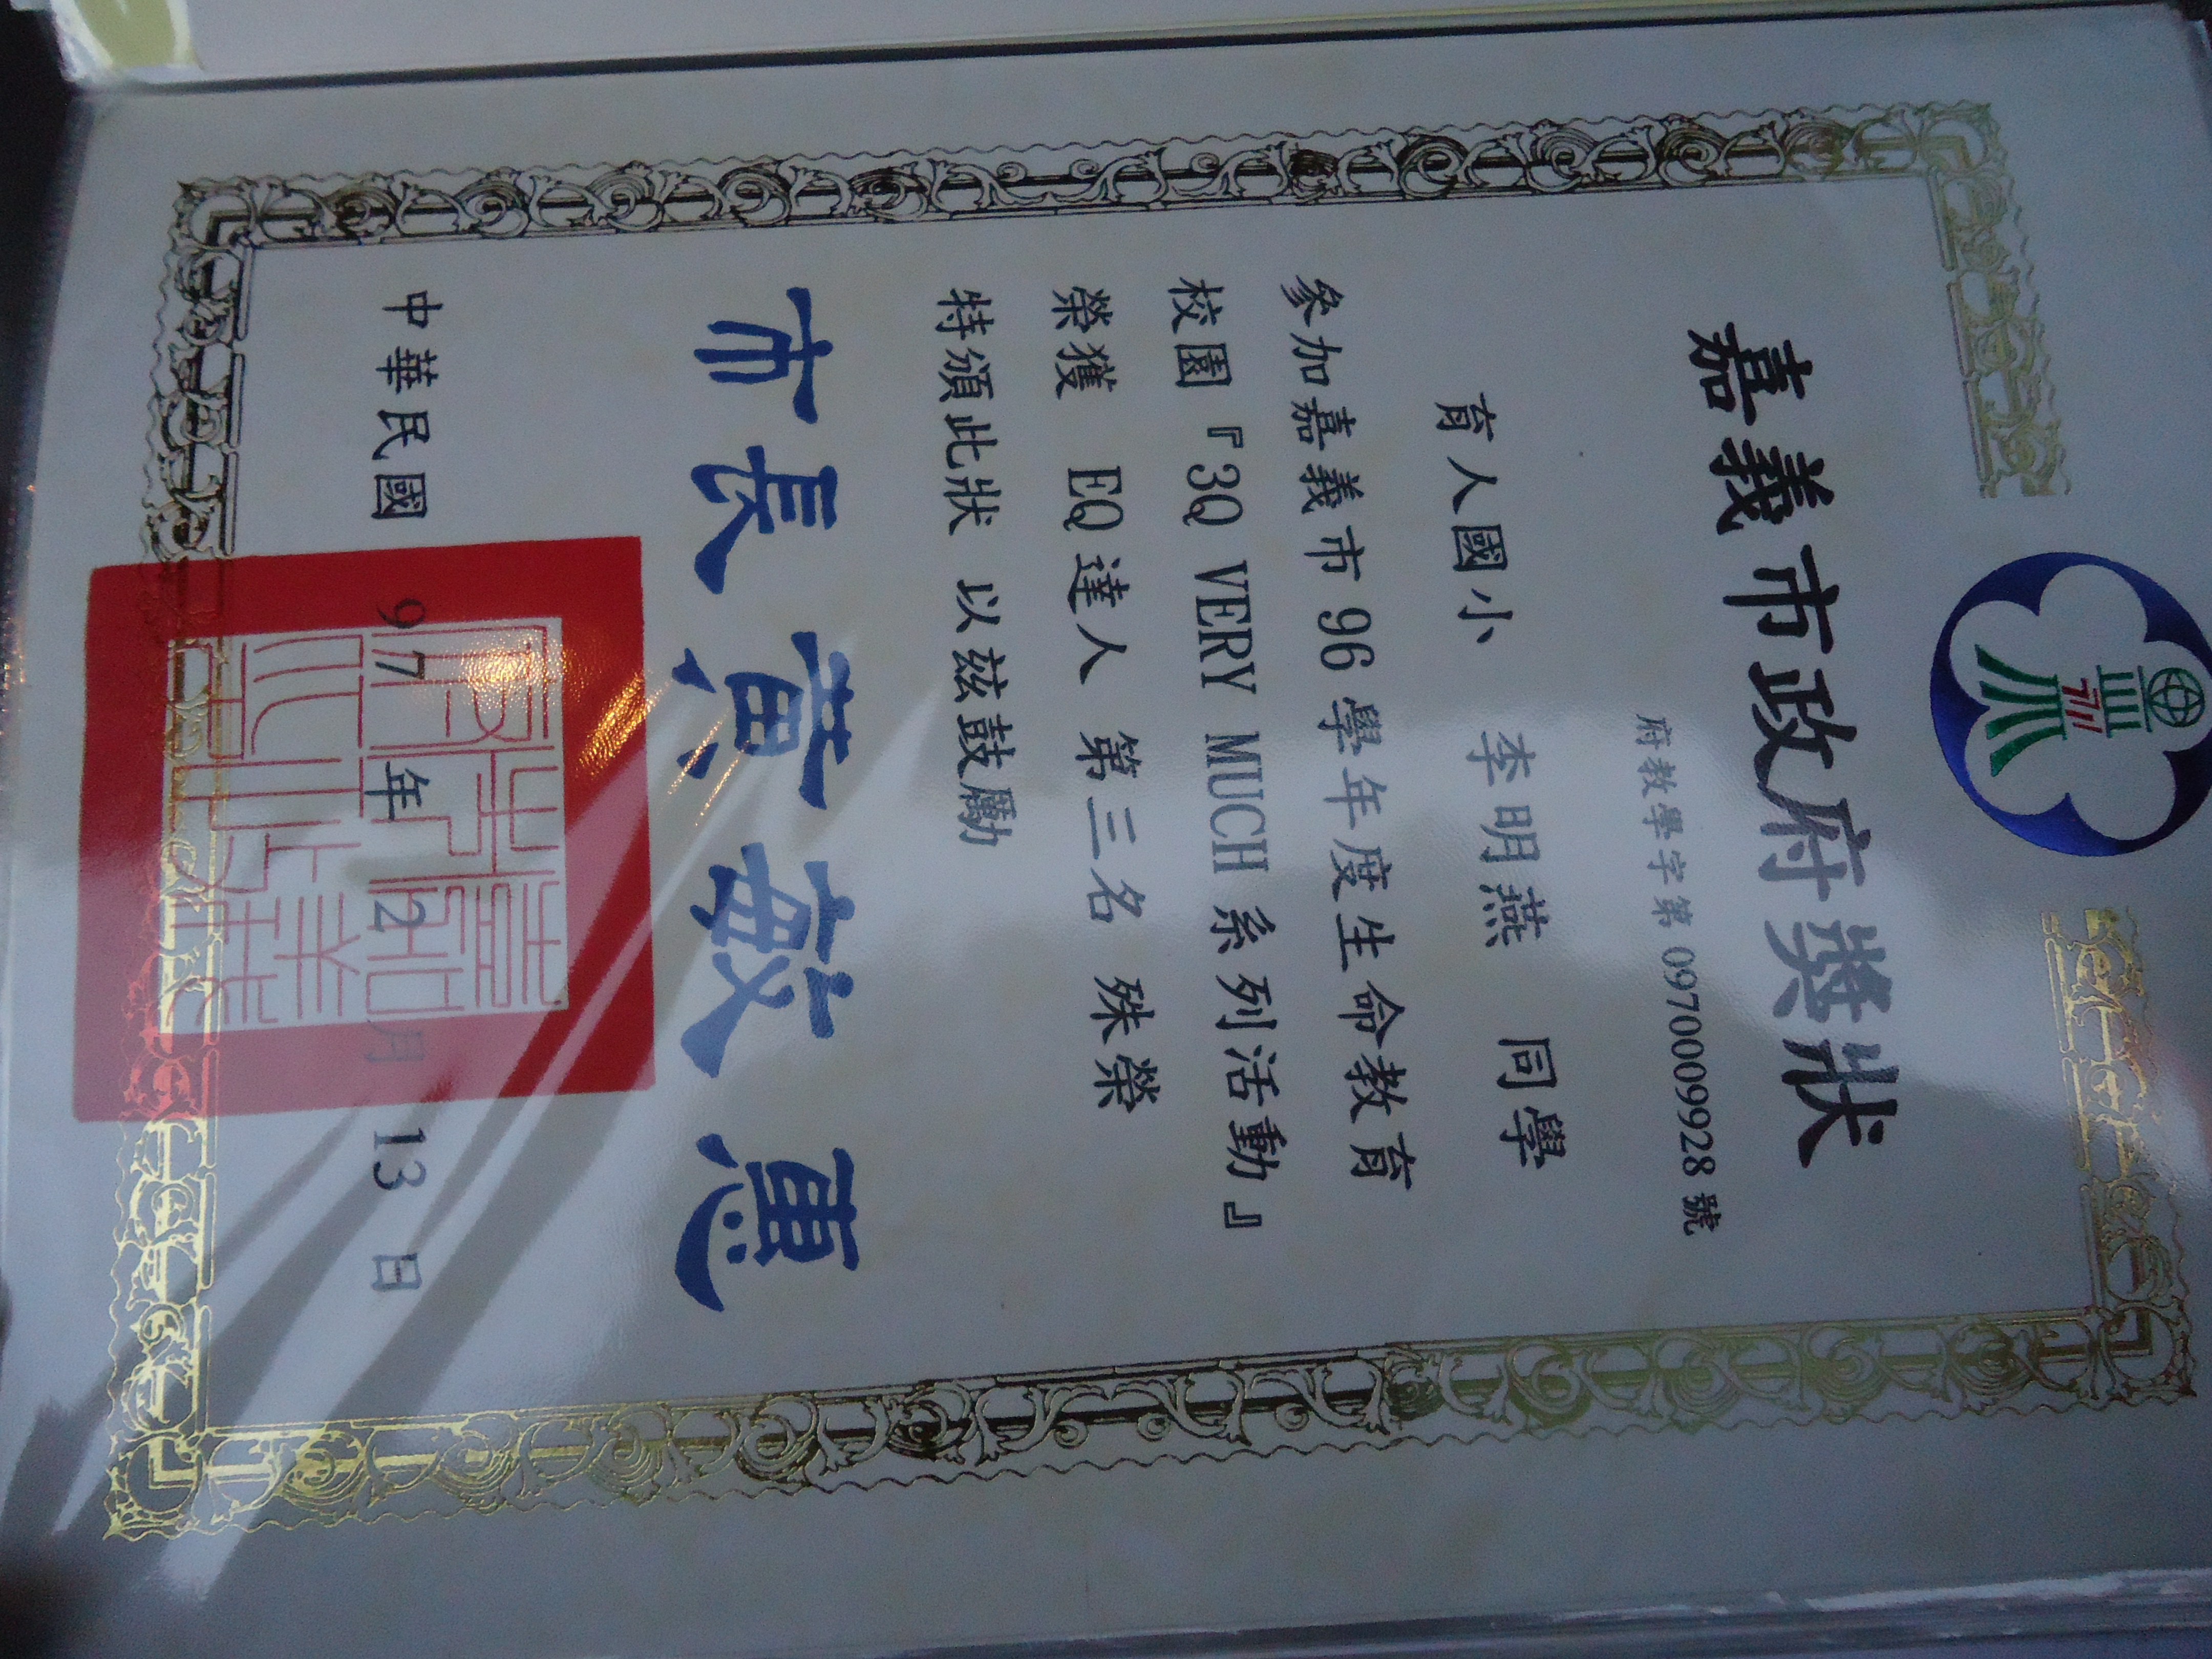 嘉義市政府獎狀
府教學字第 0970009928 號
育人國小 李明燕 同學
參加嘉義市 96 學年度生命教育
校園『3Q VERY MUCH 系列活動』
榮獲 EQ 達人 第三名 殊榮
特頒此狀 以茲鼓勵
市長黃敏惠
中華民國 97 年 2 月 13 日